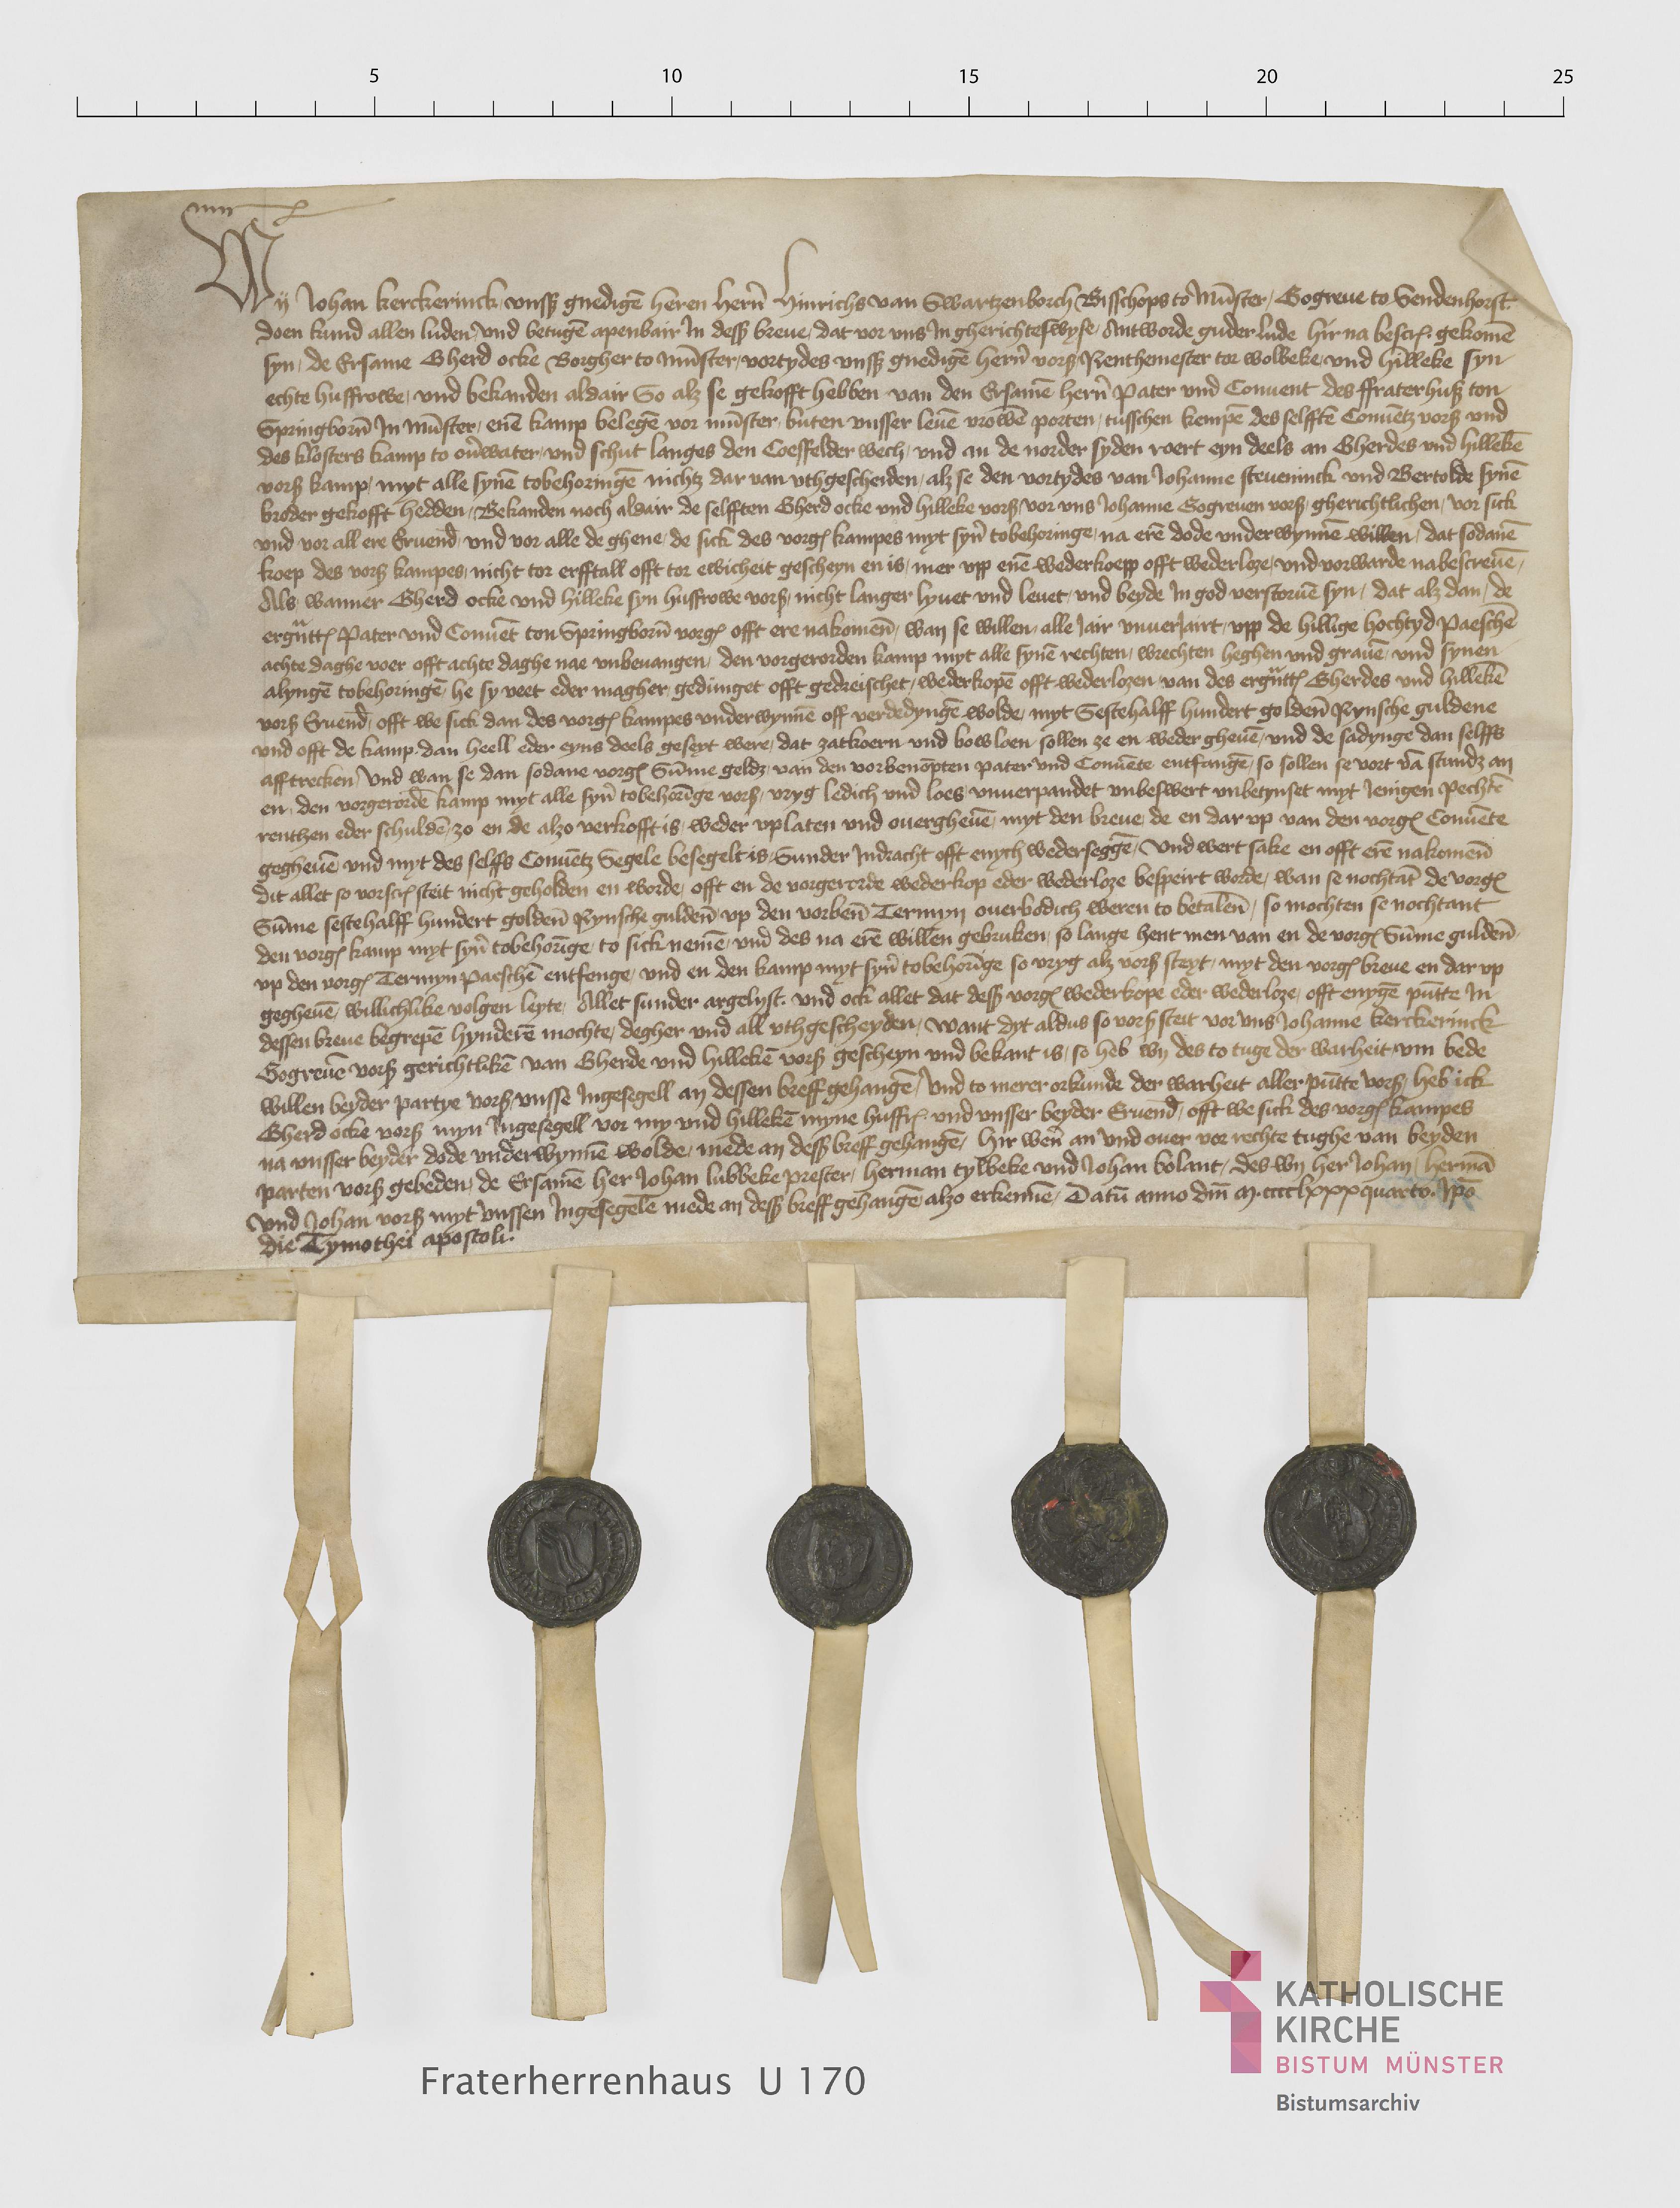 5 10 15 20 25
Wij Johan kerckerinck vnss gnedigē heren hern̄ Hinrichs van Swartzenborch Bisschops to Mūster Gogreue to Sendenhorst
doen kund allen luden vnd betugē apenbair In dess breue dat vor vns In gherichteswyse Antworde guder lude hir na bescr. gekomē
syn de Ersame Gherd ocke Borgher to mūster vortydes vnss gnedigē hern̄ vors Renthemester tor wolbeke vnd hilleke syn
echte husfrowe vnd bekanden aldair So alz se gekofft hebben van den Ersamē hern̄ Pater vnd Conuent des ffraterhuss ton
Springborn̄ In mūster enē kamp belegē vor mūster buten vnsser leuē vrowē porten tusschen kempē des selfftē Conuētz vors vnd
des klosters kamp to ouwater vnd schut langes den Coesfelder wech vnd an de norder syden voert eyn deels an Gherdes vnd hillekē
vors kamp myt alle synē tobehoringē nichtz dar van vthgescheiden alz se den vortydes van Johanne steueninck vnd Bertolde synē
broder gekofft hedden Bekanden noch aldair de selfften Gherd ocke vnd hilleke vors vor vns Johanne Gogreuen vors gherichtlichen vor sick
vnd vor all ere Eruend vnd vor alle de ghene de sick des vorg kampes myt syn̄ tobehoringe na erē dode vnderwynnē willen dat sodanē
koep des vors kampes nicht tor erfftall offt tor ewicheit gescheyn en is mer vpp enē wederkoepp offt wederloze vnd vorwarde nabescreuē
Als wanner Gherd ocke vnd hilleke syn husfrowe vors nicht langer lyuet vnd leuet vnd beyde In god verstoruē syn dat alz dan de
ergn̄tt Pater vnd Conuēt ton Springborn̄ vorg offt ere nakomen̄ wan se willen alle Jair vnuerJairt vpp de hillige hochtyd Paeschē
achte daghe voer offt achte daghe nae vnbeuangen den vorgerorden kamp myt alle synē rechten wrechten heghen vnd grauē vnd synen
alyngē tobehoringē he sy veet eder magher gedunget offt gedreischet wederkopē offt wederlozen van des ergn̄tt Gherdes vnd hillekē
vors Eruend offt we sick dan des vorg kampes vnderwynnē off verdedyngē wolde myt Sestehalff hundert golden̄ Rynsche guldene
vnd offt de kamp dan heell eder eyns deels geseyt were dat zatkoern vnd bowloen sollen ze en weder gheuē vnd de sadynge dan selffs
afftrecken Vnd wan se dan sodane vorg Sūme geldz van den vorbenōpten pater vnd Conuēte entfangē so sollen se vort vā standz an
en den vorgerordē kamp myt alle syn̄ tobehorīge vors vryg ledich vnd loes vnuerpandet vnbeswert vnbetynset myt Jenigen Pechtē
renthen eder schuldē zo en de alzo verkofft is weder vplaten vnd ouergheuē myt den breue de en dar vp van den vorg Conuēte
gegheuē vnd myt des selffs Conuētz Segele besegelt is Sunder Indracht offt enych wedersegge Vnd wert sake en offt erē nakomen̄
dit allet so vorscr steit nicht geholden en worde offt en de vorgerorde wederkop eder wederloze bespeirt worde wan se nochtāt de vorg
Sūme sestehalff hundert golden̄ Rynsche gulden̄ vp den vorben̄ Termyn ouerbodich weren to betalen̄ so mochten se nochtant
den vorg kamp myt syn̄ tobehorīge to sick nemē vnd des na erē willen gebruken so lange hent men van en de vorg Sūme gulden̄
vp den vorg Termyn Paeschē entfenge vnd en den kamp myt syn̄ tobehorīge so vryg alz vors steyt myt den vorg breue en dar vp
gegheuē willichlike volgen leyte Allet sunder argelyst vnd ock allet dat dess vorg wederkope eder wederloze offt enygē pūtte In
dessen breue begrepē hynderē mochte degher vnd all vthgescheyden want dyt aldus so vors steit vor vns Johanne kerckerinck
Gogreuē vors gerichtlikē van Gherde vnd hillekē vors gescheyn vnd bekant is so heb wy des to tuge der warheit vm bede
willen beyder partye vors vnsse Ingesegell an dessen breff gehangē Vnd to merer orkunde der warheit aller pūtte vors heb ick
Gherd ocke vors myn Ingesegell vor my vnd hillekē myne husfr. vnd vnsser beyder Eruend offt we sick des vorg kampes
na vnsser beyder dode vnderwynnē wolde mede an dess breff gehangē hir wen̄ an vnd ouer vor rechte tughe van beyden
parten vors gebeden de Ersamē her Johan lubbeke prester herman tylbeke vnd Johan bolant des wy her Johan hermā
vnd Johan vors myt vnssen Ingesegele mede an dess breff gehangē alzo erkennē Datū anno dm̄ M.cccclxxxquarto. Ipo
die Tymothei apostoli.
Fraterherrenhaus U 170
KATHOLISCHE
KIRCHE
BISTUM MÜNSTER
Bistumsarchiv